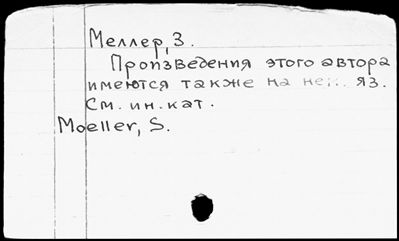 Меллер, З.
Произведения этого автора
имеются также на яз.
См. ин. кат.
Moeller, S.